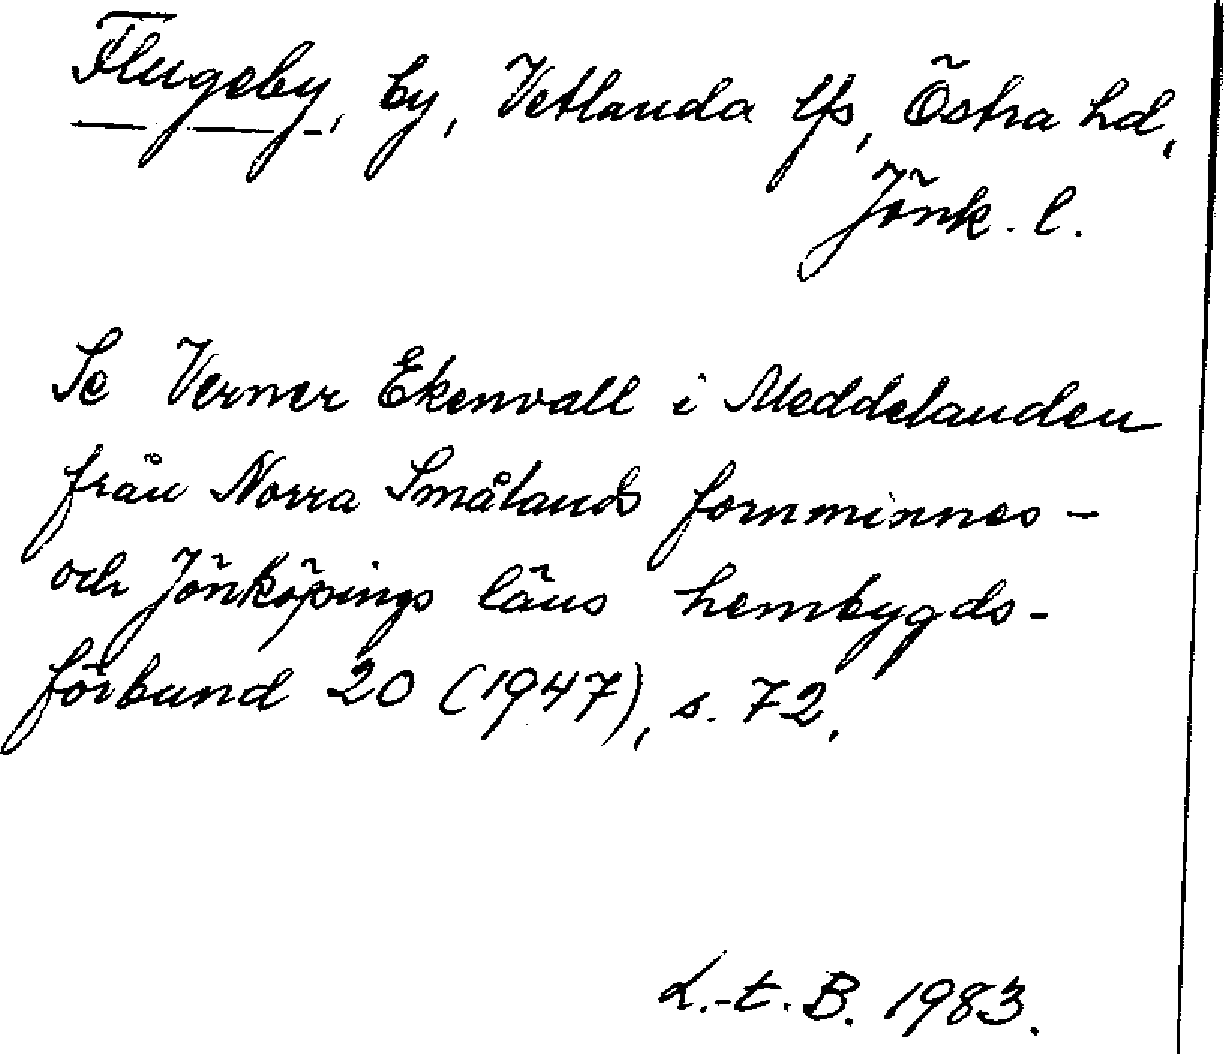 Flugeby, by, Vetlanda lfs, Östra hd,
Jönk. l.
Se Verner Ekenvall i Meddelanden
från Norra Smålands fornminnes-
och Jönköpings läns hembygds-
förbund 20 (1947), s. 72.
L.-t. B. 1983.